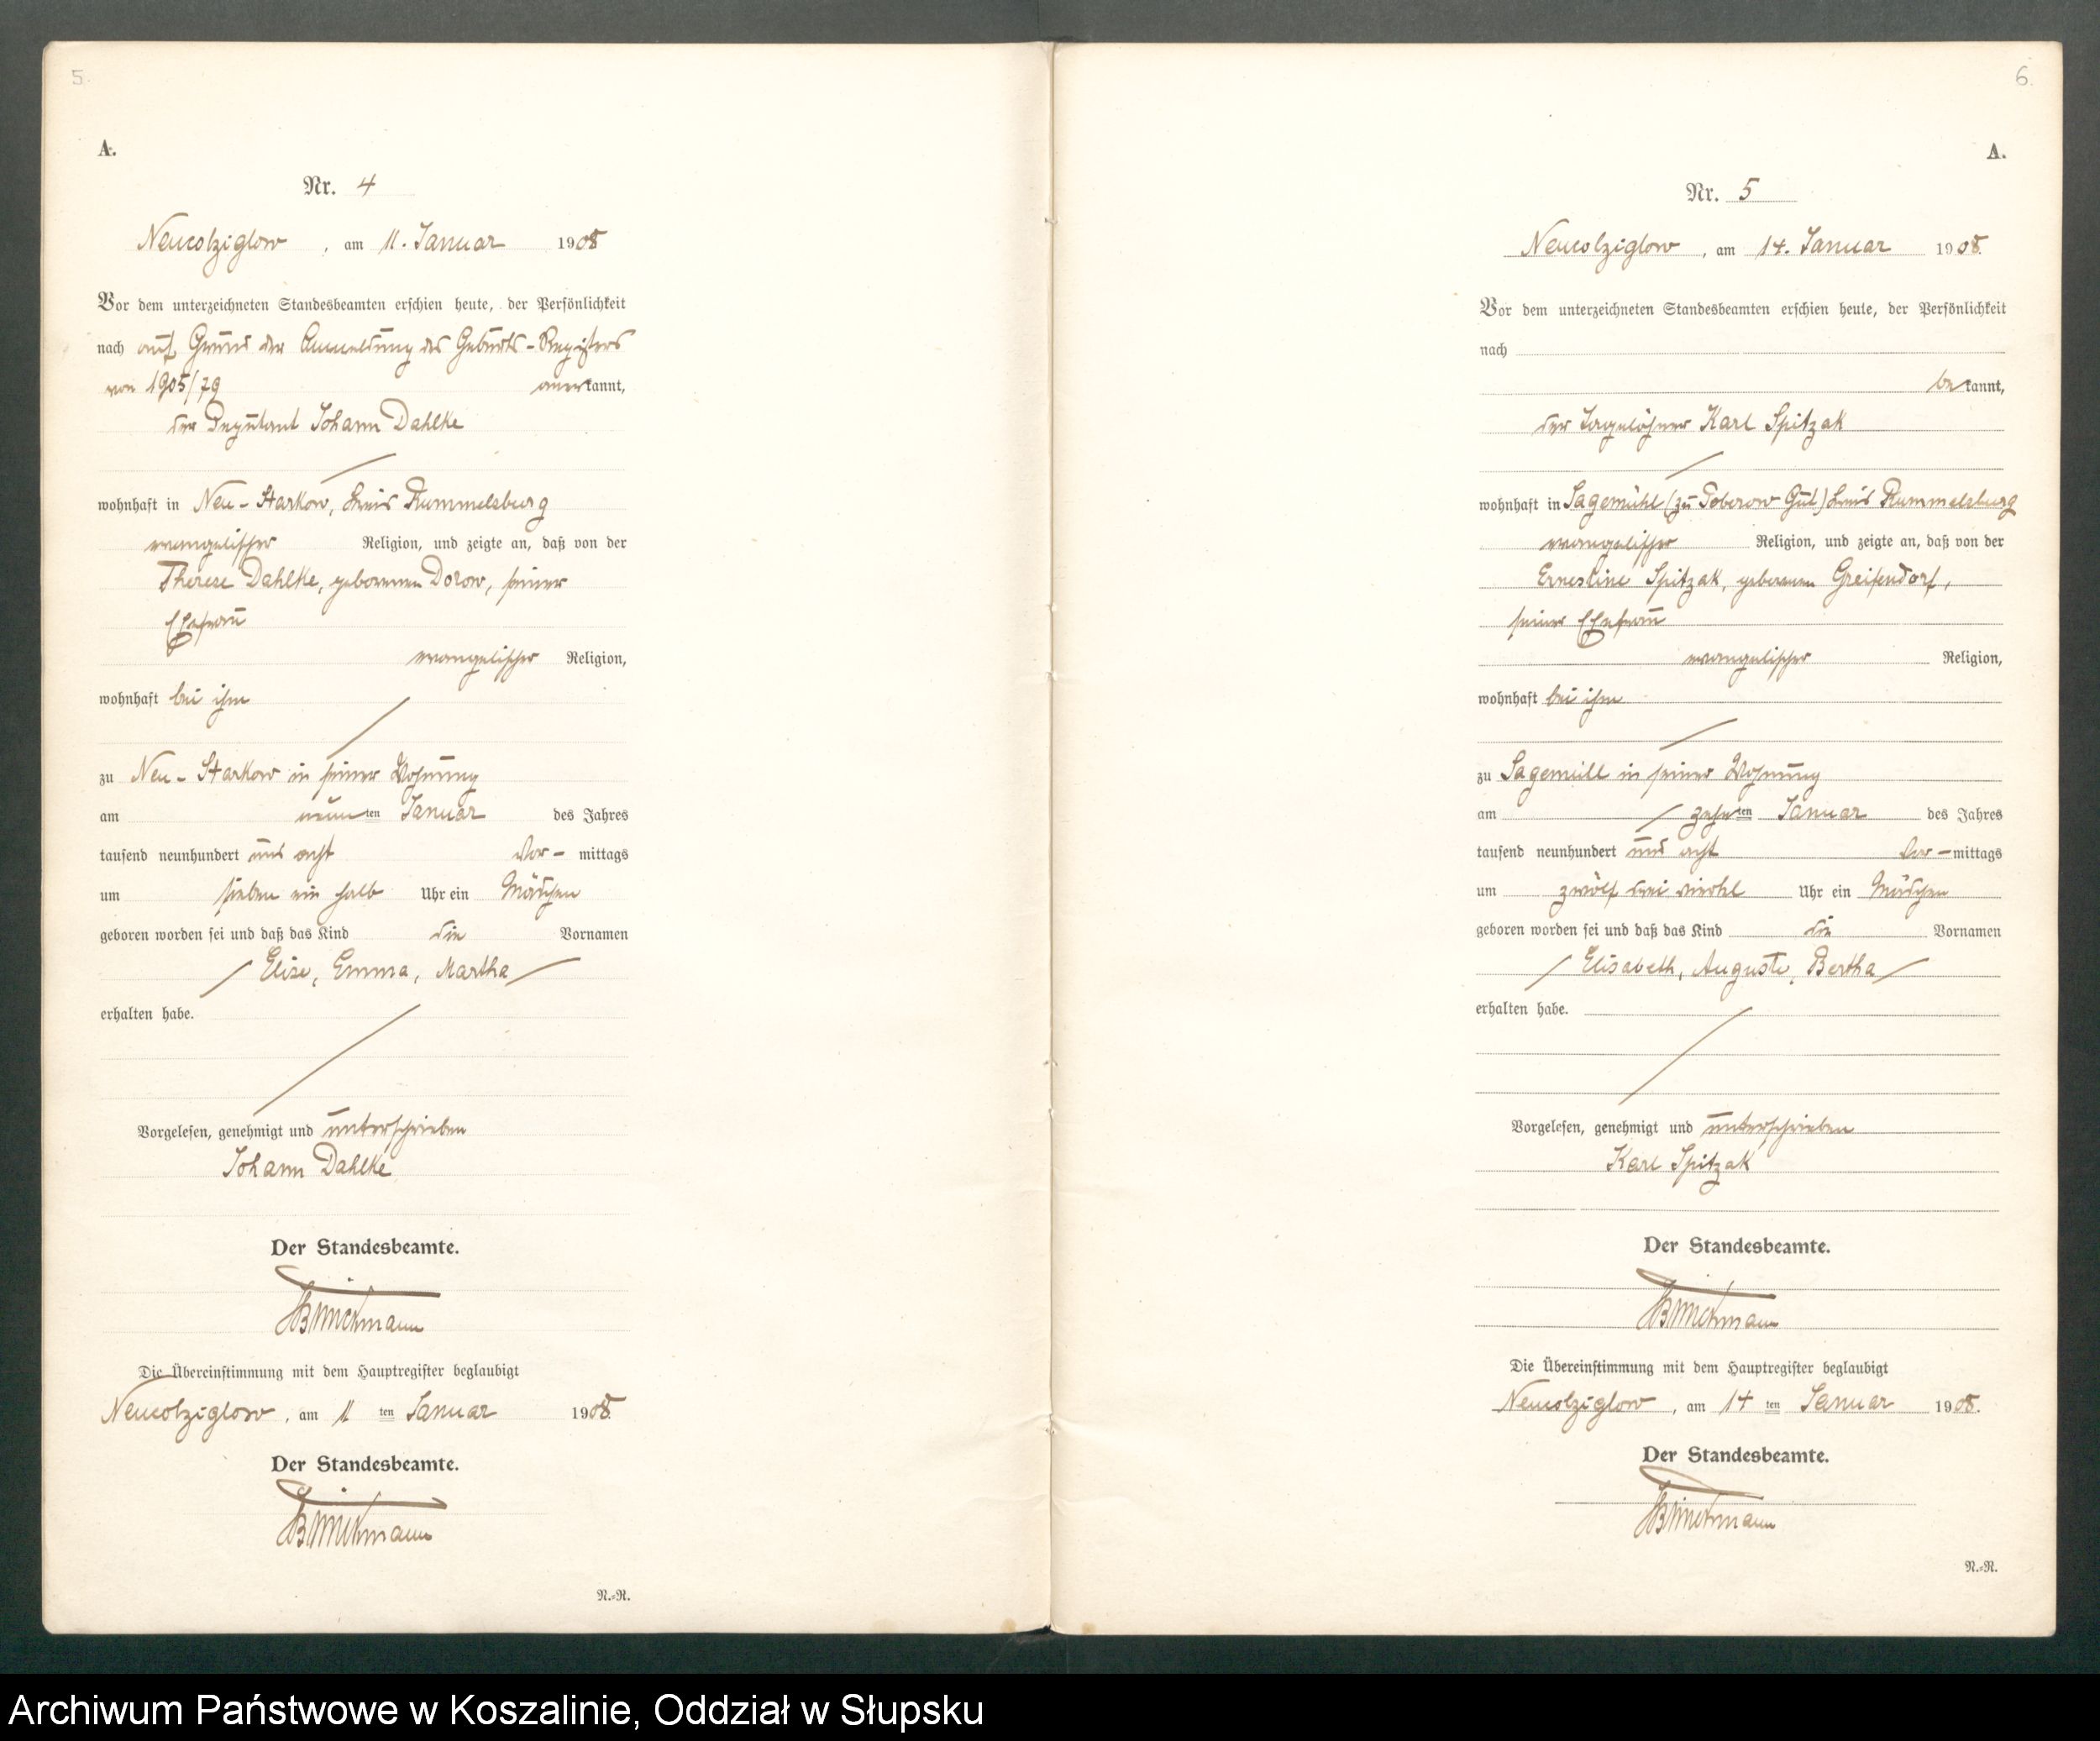 5.
A.
Nr. 4
Neucolziglow, am 11. Januar 1908
Vor dem unterzeichneten Standesbeamten erschien heute, der Persönlichkeit
nach auf Grund der Anmeldung des Geburts-Registers
von 1905/79 anerkannt,
der Deputant Johann Dahlke
wohnhaft in Neu-Starkow, Kreis Rummelsburg
evangelischer Religion, und zeigte an, daß von der
Therese Dahlke, geborenen Dorow, seiner
Ehefrau
evangelischer Religion,
wohnhaft bei ihm
zu Neu-Starkow in seiner Wohnung
am neunten Januar des Jahres
tausend neunhundert und acht Vor-mittags
um sieben ein halb Uhr ein Mädchen
geboren worden sei und daß das Kind die Vornamen
Elise, Emma, Martha
erhalten habe.
Vorgelesen, genehmigt und unterschrieben
Johann Dahlke
Der Standesbeamte.
Die Übereinstimmung mit dem Hauptregister beglaubigt
Neucolziglow, am 11 ten Januar 1908.
Der Standesbeamte.
N.=R.
6.
A.
Nr. 5
Neucolziglow, am 14. Januar 1908.
Vor dem unterzeichneten Standesbeamten erschien heute, der Persönlichkeit
nach
bekannt,
der Tagelöhner Karl Spitzak
wohnhaft in Sagemühl (zu Poberow Gut) Kreis Rummelsburg
evangelischer Religion, und zeigte an, daß von der
Ernestine Spitzak, geborenen Greifendorf,
seiner Ehefrau
evangelischer Religion,
wohnhaft bei ihm
zu Sagemüll in seiner Wohnung
am zehnten Januar des Jahres
tausend neunhundert und acht Vor-mittags
um zwölf drei viertel Uhr ein Mädchen
geboren worden sei und daß das Kind die Vornamen
Elisabeth, Auguste, Bertha
erhalten habe.
Vorgelesen, genehmigt und unterschrieben
Karl Spitzak
Der Standesbeamte.
Die Übereinstimmung mit dem Hauptregister beglaubigt
Neucolziglow, am 14 ten Januar 1908.
Der Standesbeamte.
N.=R.
Archiwum Państwowe w Koszalinie, Oddział w Słupsku